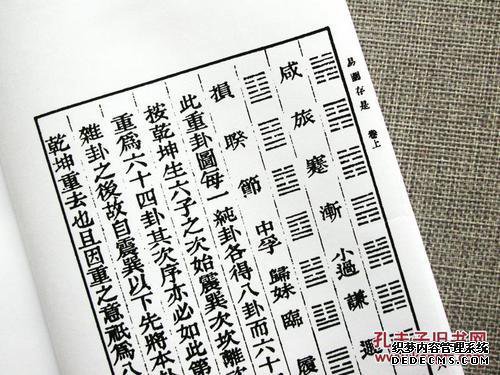 易圖存是 卷上
咸 旅 蹇 漸 小過 謙 遯
損 睽 節 中孚 歸妹 臨 履
此重卦圖每一純卦各得八卦而六十
按乾坤生六子之次始震巽次坎離
重爲六十四卦其次序亦必如此第
雜卦之後故自震巽以下先將本
乾坤重去也且因重之意祇爲八
孔夫子旧书网
织梦内容管理系统
DEDECMS.COM